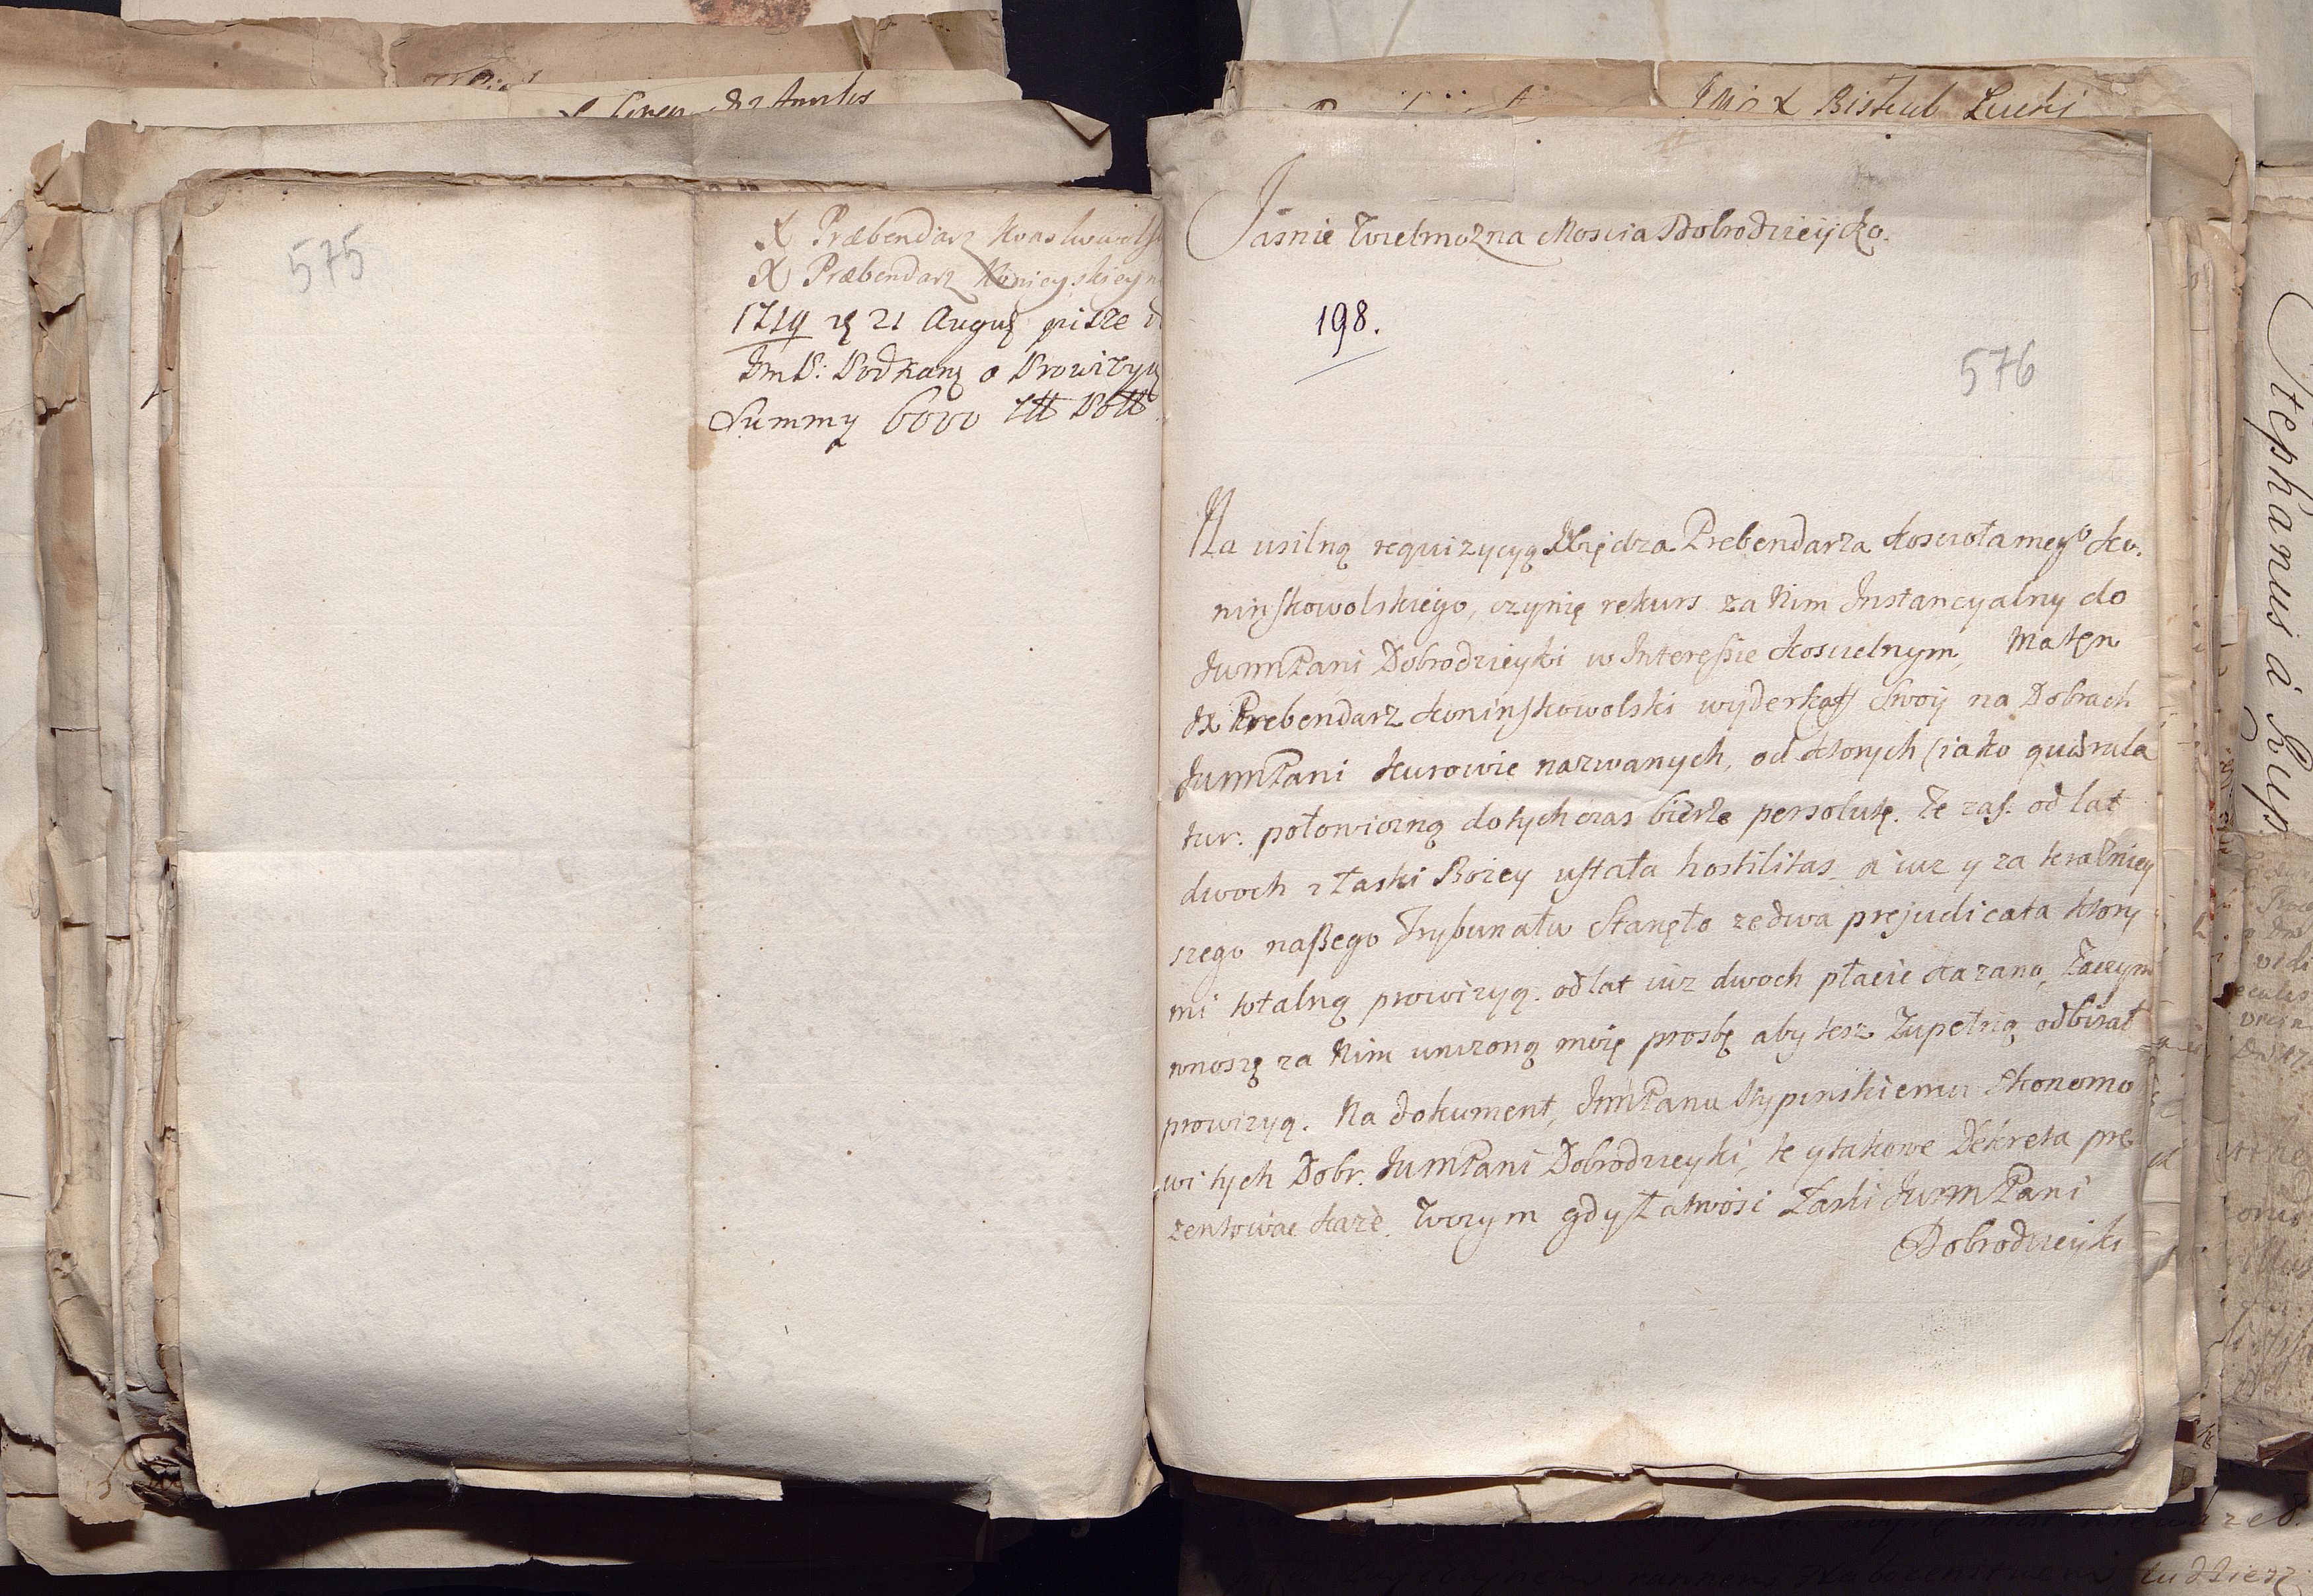 575
X Præbendarz
X Præbendarz
1719 21 Augus pisze
Im P: Podkanc o Prowizyą
Summy 6000
Jmć X Biskub Łucki
Jasnie Wielmozna Moscia Dobrodzieyko.
198.
576
Na usilną requizycyą Xiędza Prebendarza Koscioła meg° Ko.
ninskowolskiego, czynię rekurs za Nim Instancyalny do
JwmPani Dobrodzieyki w Interessie Koscielnym, Ma ten
JX Prebendarz Koninskowolski wyderkaff swoy na Dobrach
JwmPani Kurowie nazwanych, od ktorych (iako quærula
tur. połowiczną dotychczas bierze persolutę. Ze zas. od lat
dwoch z łaski Bozey ustała hostilitas, a iuz y za teraźniey
szego naszego Trybunału Stanęło ze dwa prejudicata ktory
mi totalną prowizyą. od lat iuz dwoch płacic kazano, Zaczym
wnoszę za Nim unizoną moię prosbę aby tesz zupełną odbirał
prowizyą. Na dokument, JmPanu Stypinskiemu Ekonomo
wi tych Dobr. JwmPani Dobrodzieyki, te y takowe Dekreta pre
zentowac każe. W czym gdy Łatwosc Łaski JwmPani
Dobrodzieyki
Stephanus à Rup